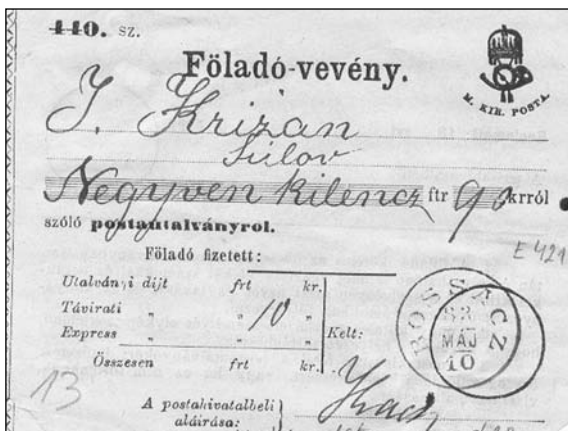 440. sz.
Föladó-vevény.
M. KIR. POSTA.
J. Krizan
Sulov
Negyven kilencz ftr 90 krról
szóló postautalványrol.
E 421
Föladó fizetett:
Utalványi díjt frt kr.
Távirati " " 10 "
Express " " Kelt:
Összesen frt kr.
BOSSÁCZ
83
MÁJ
10
13
A postahivatalbeli
aláirása: